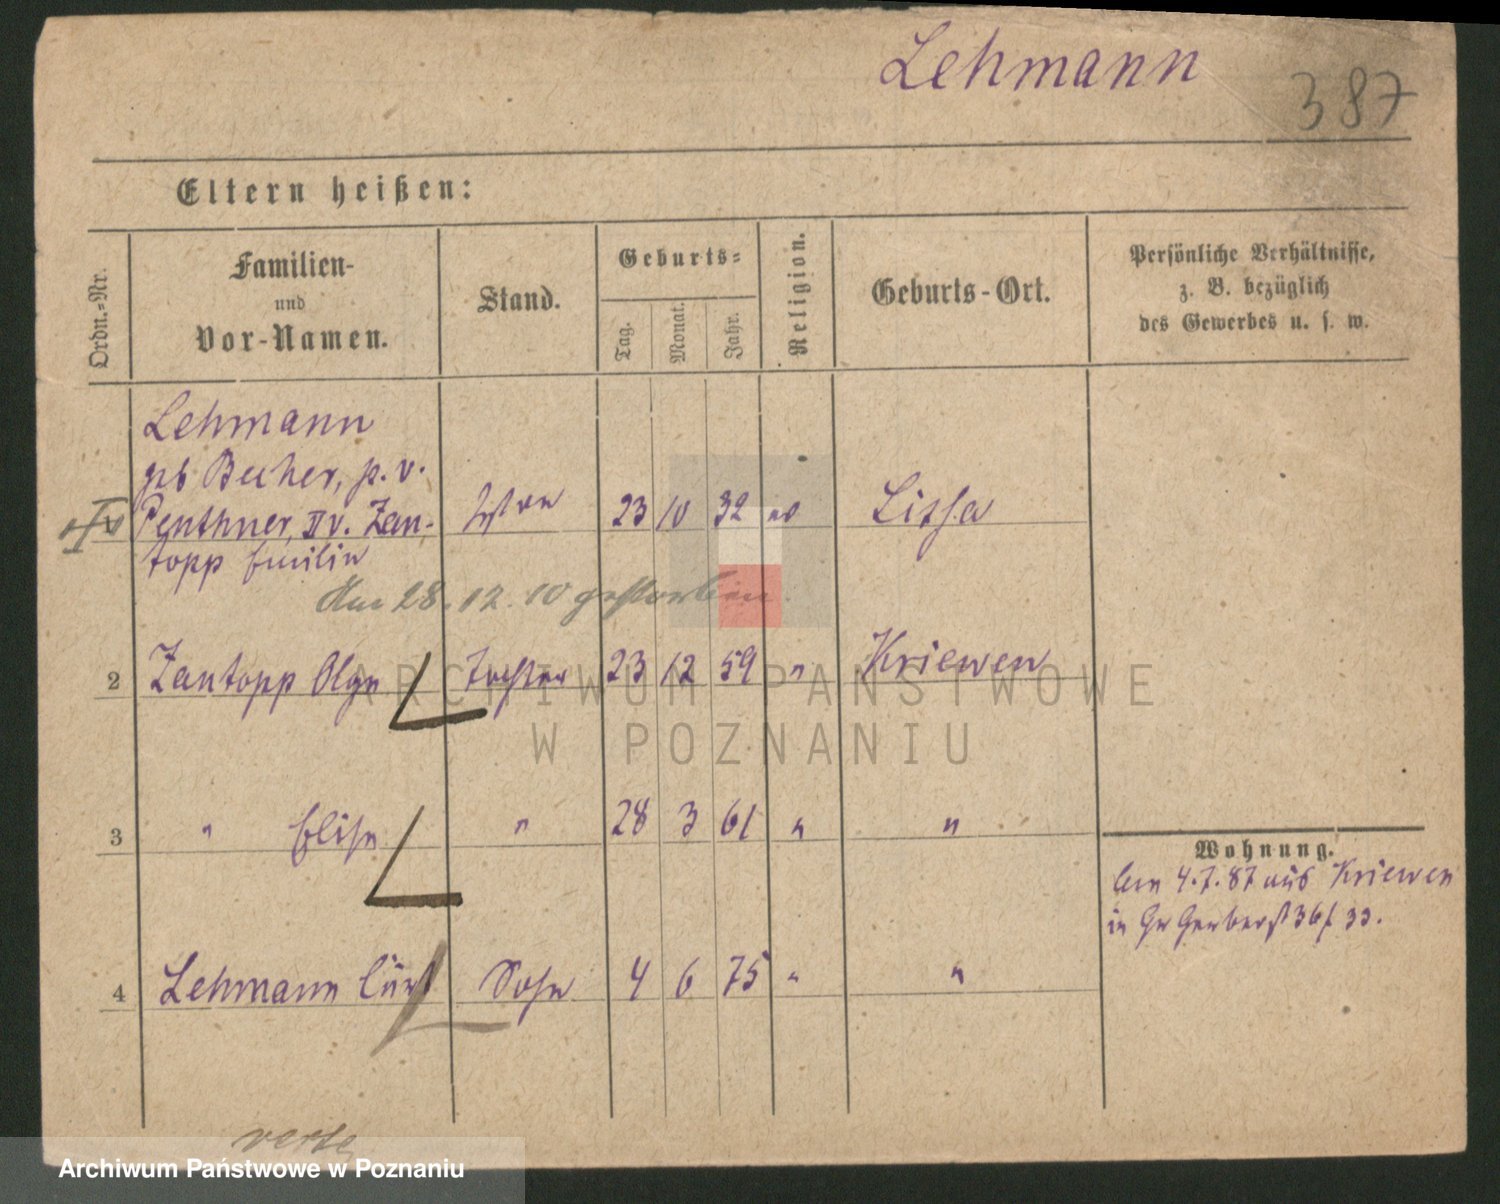 Lehmann
387
Eltern heißen:
Ordn.-Nr.
Familien-
und
Vor-Namen.
Stand.
Geburts-
Tag.
Monat.
Jahr.
Religion.
Geburts-Ort.
Persönliche Verhältnisse,
z. B. bezüglich
des Gewerbes u. s. w.
Lehmann
geb Becher, p. v.
Penthner, II v. Zan-
topp Emilie
23 10 32 ev Lissa
Am 28.12.10 gestorben.
2 Zantopp Olga Tochter 23 12 59 " Kriewen
3 " Elise " 28 3 61 " "
4 Lehmann Curt Sohn 4 6 75 " "
Wohnung.
Am 4.7.87 aus Kriewen
in Gr Gerberst 36
verte
ARCHIWUM PAŃSTWOWE
W POZNANIU
Archiwum Państwowe w Poznaniu